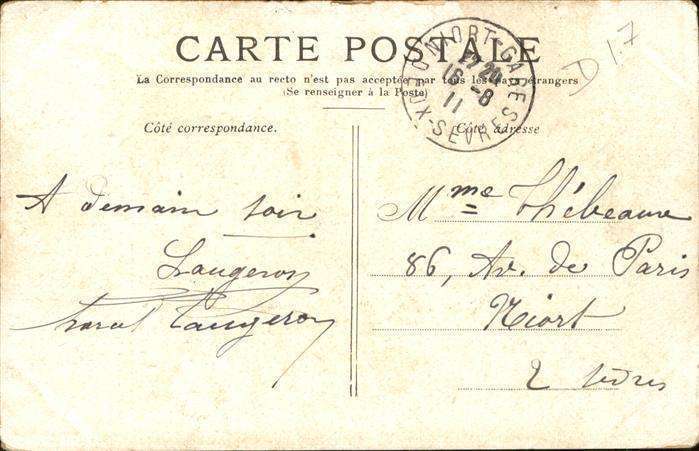 CARTE POSTALE
La Correspondance au recto n'est pas acceptée par tous les pays étrangers
(Se renseigner à la Poste)
NIORT-GARE
DEUX-SEVRES
17 20
16 -8
11
D 1.7
Côté correspondance.
Côté adresse
A demain soir
Laugeron
Laugeron
Mme Thébeaux
86, Av. de Paris
Niort
2 Sèvres